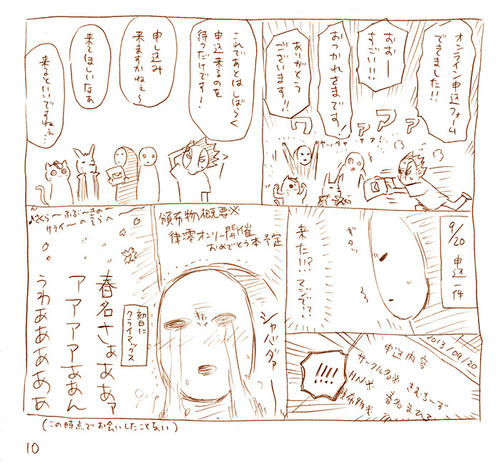 オンライン申込フォーム
できました!!
おおー
すごい!!!
おつかれさまです!
ありがとう
ございます!!
ワァァァ
これであとはしばらく
申込来るのを
待つだけです!
申し込み
来ますかねぇ〜
来てほしいなぁ
来るといいですねぇ…
9/20 申込一件
ギッ…
来た!!? マジで!?
2013/09/20
申込内容
サークル名※
HN※
!!!!
頒布物概要※
律澪オンリー開催
おめでとう本予定
シャバダァ
初日に
クライマックス
♪さくらー ふぶーきの
サライーの そらへ
春名さぁああァ
アアアアぁあん
うわああああぁ
(この時点でお会いしたことない)
10